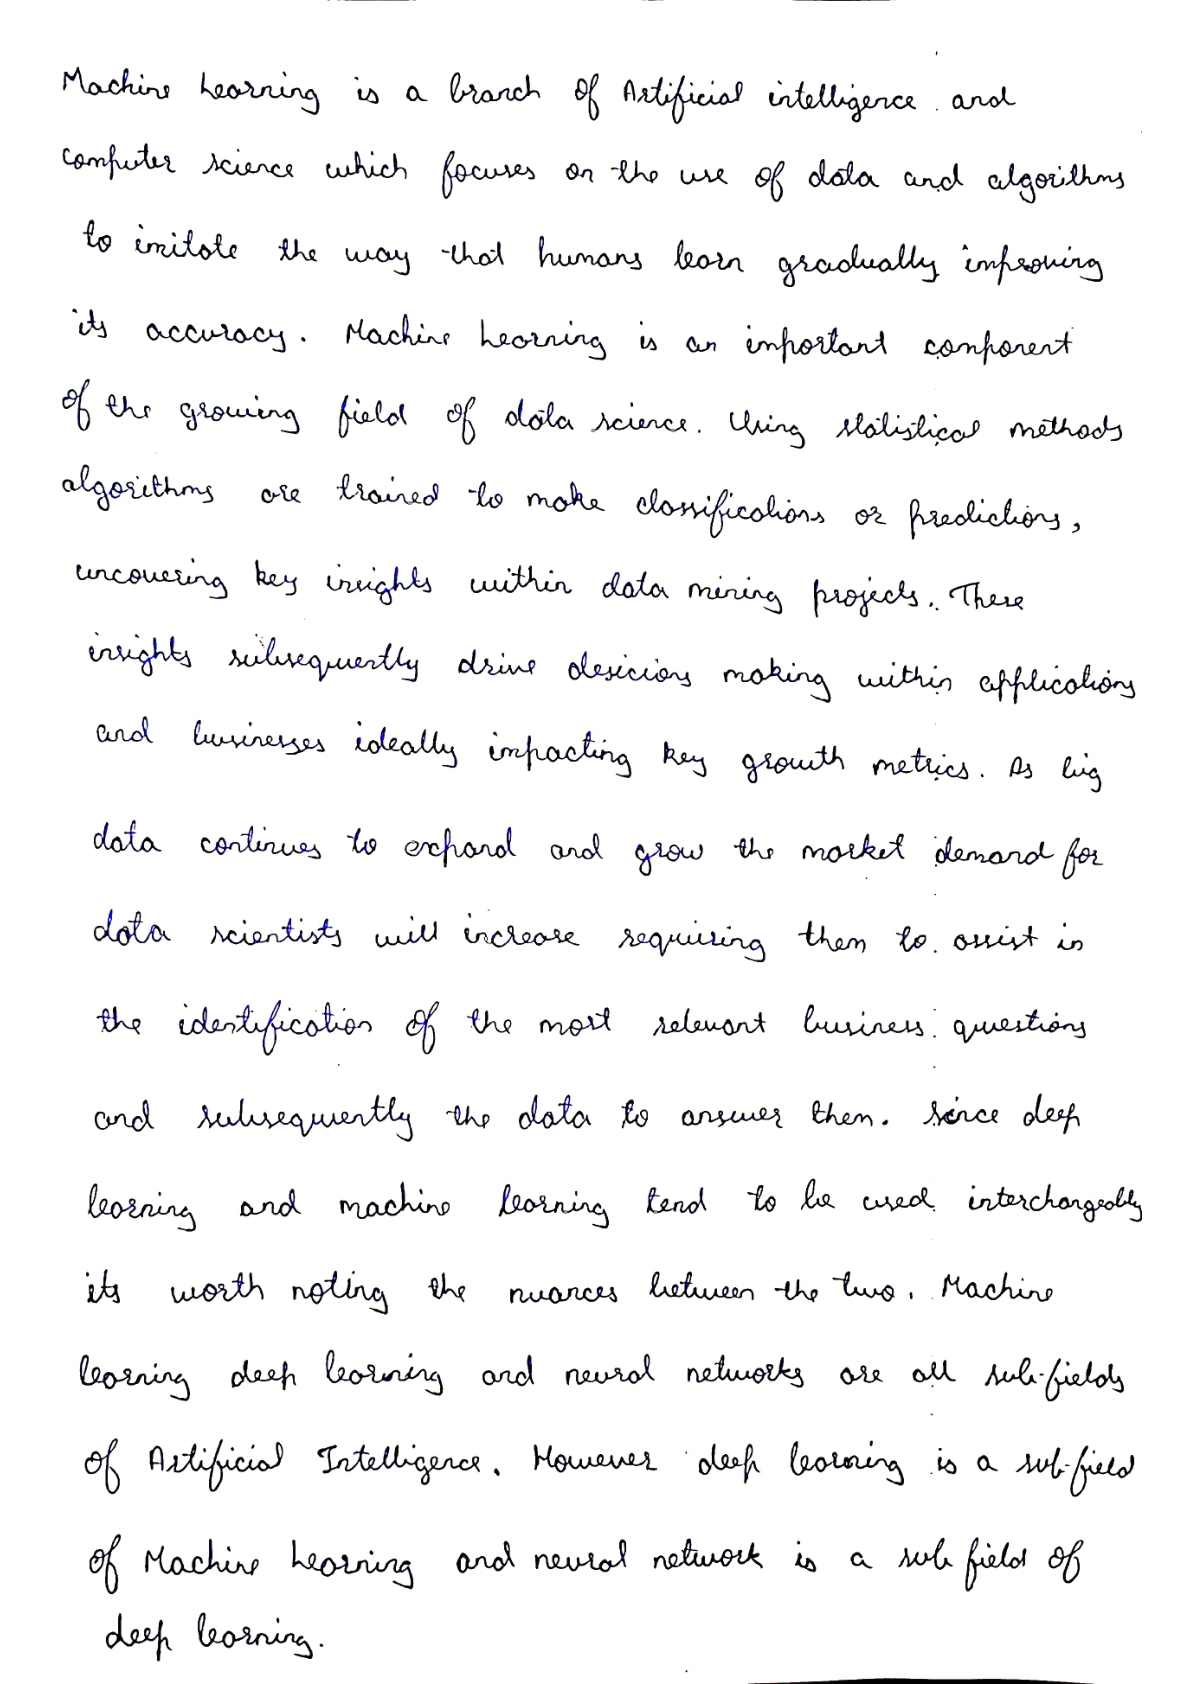 Machine Learning is a branch of Artificial intelligence and
computer science which focuses on the use of data and algorithms
to imitate the way that humans learn gradually improving
its accuracy. Machine Learning is an important component
of the growing field of data science. Using statistical methods
algorithms are trained to make classifications or predictions,
uncovering key insights within data mining projects. These
insights subsequently drive desicions making within applications
and businesses ideally impacting key growth metrics. As big
data continues to expand and grow the market demand for
data scientists will increase requiring them to assist in
the identification of the most relevant business questions
and subsequently the data to answer them. Since deep
learning and machine learning tend to be used interchangeably
its worth noting the nuances between the two. Machine
learning deep learning and neural networks are all sub-fields
of Artificial Intelligence. However deep learning is a sub-field
of Machine Learning and neural network is a sub field of
deep learning.